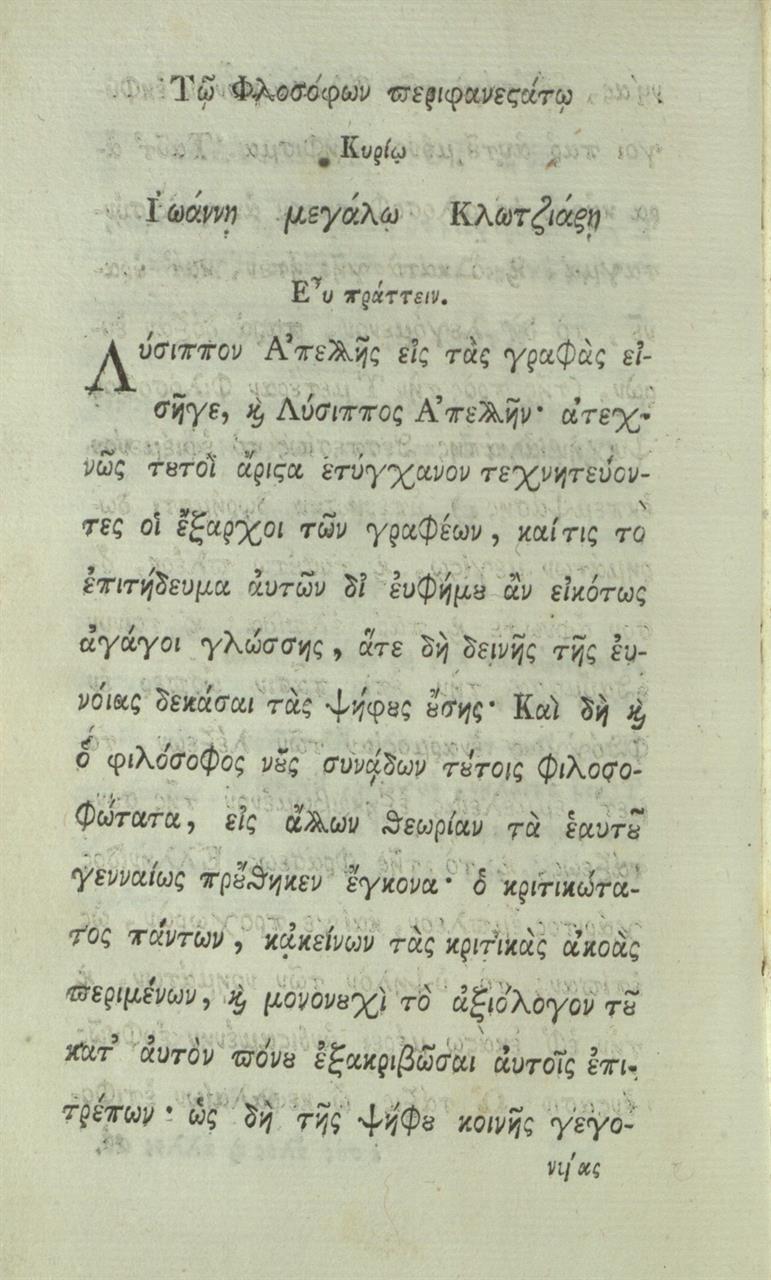 Τῷ Φιλοσόφων ϖεριφανεϛάτῳ
Κυρίῳ
Ἰωάννῃ μεγάλῳ Κλωτζιάρῃ
Εὖ πράττειν.
Λύσιππον Ἀπελλῆς εἰς τὰς γραφὰς εἰ-
σῆγε, ϗ Λύσιππος Ἀπελλῆν· ἀτεχ-
νῶς τȣτοὶ ἄριϛα ἐτύγχανον τεχνητεύον-
τες οἱ ἔξαρχοι τῶν γραφέων, καίτις τὸ
ἐπιτήδευμα ἀυτῶν δἰ ἐυφήμȣ ἂν εἰκότως
ἀγάγοι γλώσσης, ἅτε δὴ δεινῆς τῆς ἐυ-
νόιας δεκάσαι τὰς ψήφȣς ȣ̓́σης· Καὶ δὴ ϗ
ὁ φιλόσοφος νȣ͂ς συνᾴδων τȣ́τοις φιλοσο-
φώτατα, εἰς ἄλλων θεωρίαν τὰ ἑαυτȣ͂
γενναίως πρȣ̓́θηκεν ἔγκονα· ὁ κριτικώτα-
τος πάντων, κᾀκείνων τὰς κριτικὰς ἀκοὰς
ϖεριμένων, ϗ μονονȣχὶ τὸ ἀξιόλογον τȣ͂
κατ' ἀυτὸν ϖόνȣ ἐξακριβῶσαι ἀυτοῖς ἐπι-
τρέπων· ὡς δὴ τῆς ψήφȣ κοινῆς γεγο-
νυίας